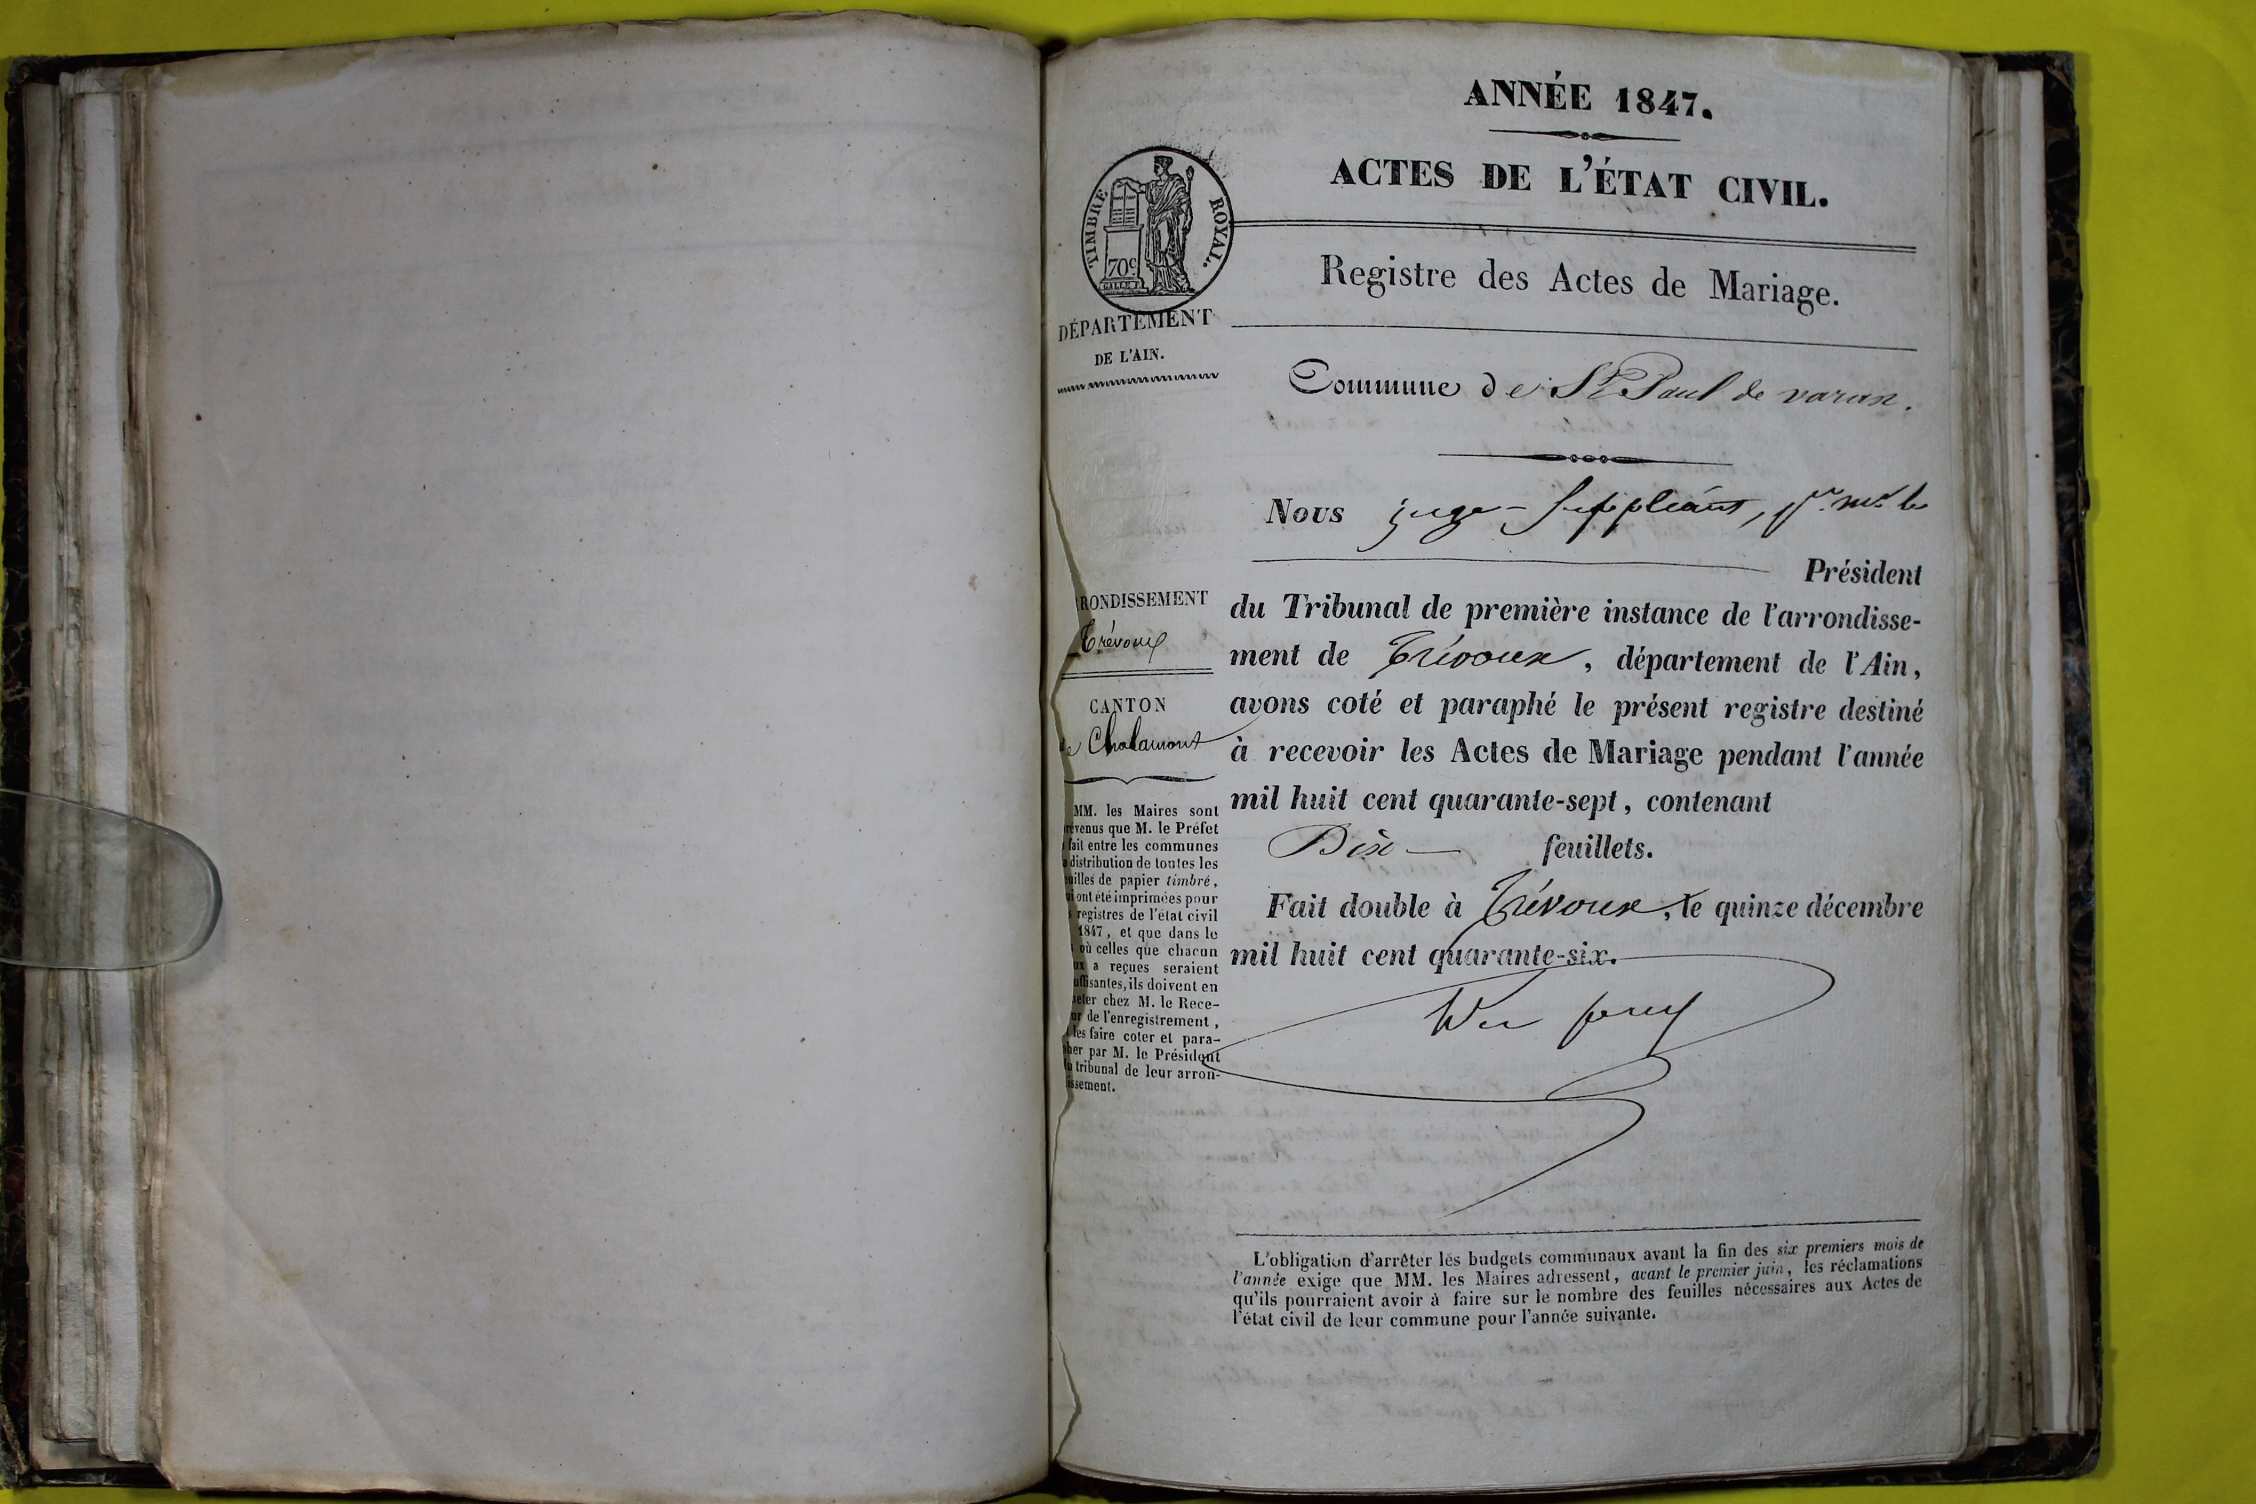 ANNÉE 1847.
ACTES DE L'ÉTAT CIVIL.
TIMBRE ROYAL.
70c
Registre des Actes de Mariage.
DÉPARTEMENT
DE L'AIN.
Commune de St Paul de varax.
Nous juge-suppléant, pr. mr. le
Président
du Tribunal de première instance de l'arrondisse-
ment de Trévoux, département de l'Ain,
avons coté et paraphé le présent registre destiné
à recevoir les Actes de Mariage pendant l'année
mil huit cent quarante-sept, contenant
Dix feuillets.
Fait double à Trévoux, le quinze décembre
mil huit cent quarante-six.
RONDISSEMENT
Trévoux
CANTON
de Chalamont
MM. les Maires sont
révenus que M. le Préfet
fait entre les communes
distribution de toutes les
uilles de papier timbré,
ui ont été imprimées pour
registres de l'état civil
1847, et que dans le
où celles que chacun
ux a reçues seraient
uffisantes, ils doivent en
eter chez M. le Rece-
ur de l'enregistrement,
les faire coter et para-
her par M. le Président
u tribunal de leur arron-
issement.
L'obligation d'arrêter les budgets communaux avant la fin des six premiers mois de
l'année exige que MM. les Maires adressent, avant le premier juin, les réclamations
qu'ils pourraient avoir à faire sur le nombre des feuilles nécessaires aux Actes de
l'état civil de leur commune pour l'année suivante.